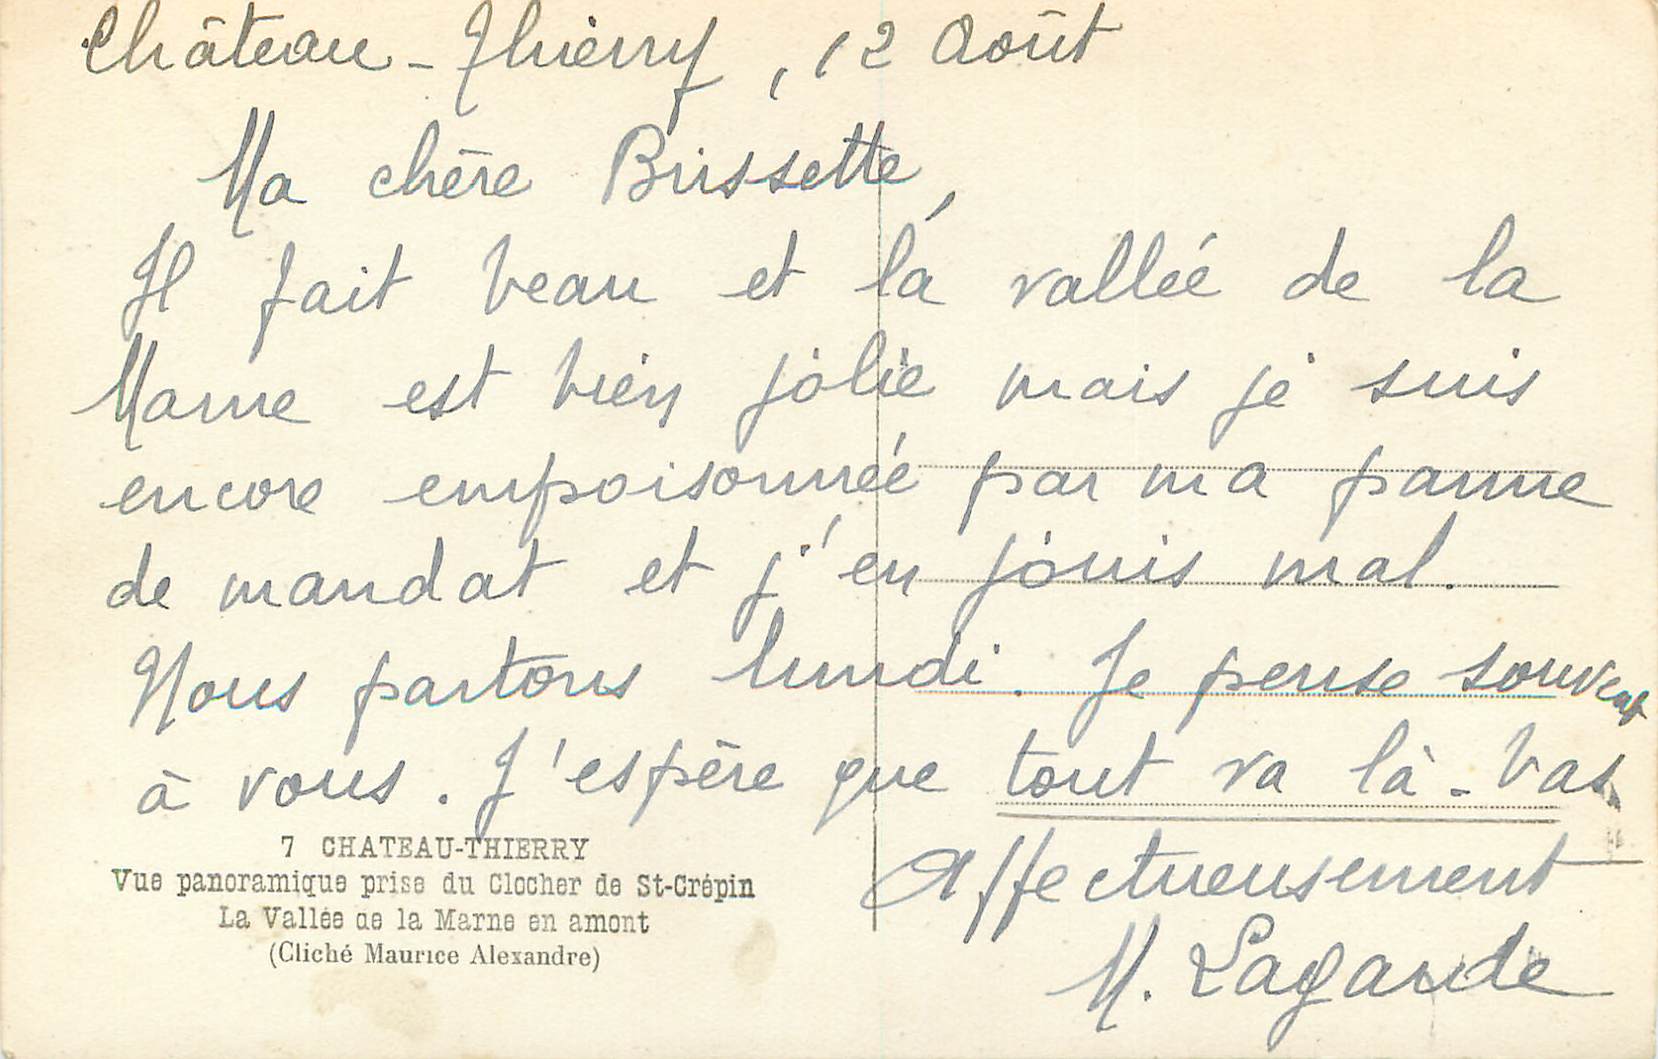 Château-Thierry, 12 Août
Ma chère Brissette,
Il fait beau et la vallée de la
Marne est bien jolie mais je suis
encore empoisonnée par ma panne
de mandat et j'en jouis mal.
Nous partons lundi. Je pense souvent
à vous. J'espère que tout va là-bas
Affectueusement
M. Lagarde
7 CHATEAU-THIERRY
Vue panoramique prise du Clocher de St-Crépin
La Vallée de la Marne en amont
(Cliché Maurice Alexandre)